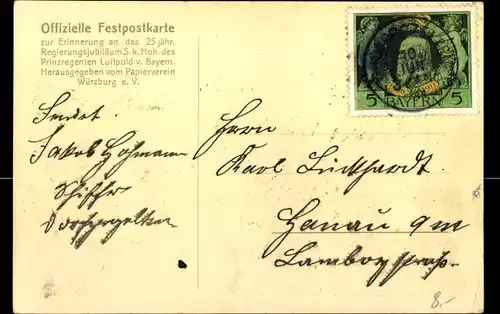 Offizielle Festpostkarte
zur Erinnerung an das 25 jähr.
Regierungsjubiläum S. k. Hoh. des
Prinzregenten Luitpold v. Bayern.
Herausgegeben vom Papierverein
Würzburg e. V.
Sendet
Jakob Hofmann
Schiffer
5 BAYERN 5
Herrn
Karl Lückhardt
Hanau a/m
Lamboystraße.
8,-